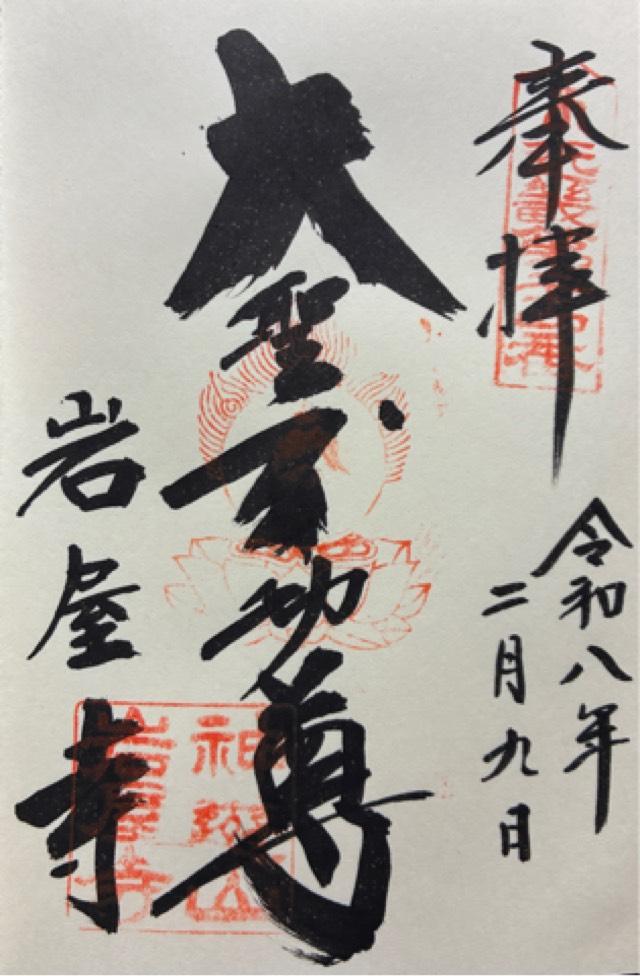 奉拝
令和八年
二月九日
大聖不動尊
岩屋寺
神遊山
岩屋寺